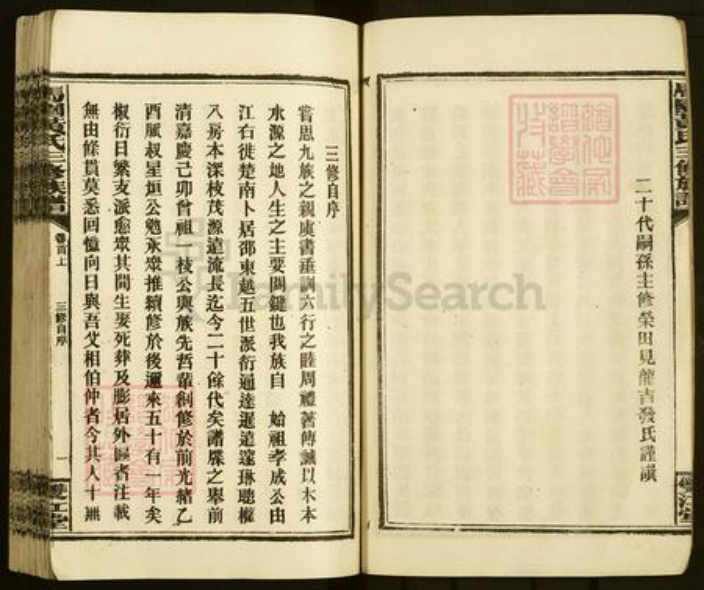 二十代嗣孫主修榮田見龍吉發氏謹識
三修自序
嘗思九族之親虞書垂訓六行之睦周禮著傳誠以木本
水源之地人生之主要關鍵也我族自 始祖孝成公由
江右徙楚南卜居邵東越五世派衍通達遐遠瑔琳聰櫳
八房本深枝茂源遠流長迄今二十餘代矣譜牒之舉前
清嘉慶己卯曾祖一枝公與族先哲輩創修於前光緒乙
酉胍叔星垣公勉承眾推續修於後邇來五十有一年矣
椒衍日繁支派愈眾其間生娶死葬及膨居外區者注載
無由條貫莫悉回憶向日與吾父相伯仲者今其人十無
氏三修族譜
卷首上
三修自序
一
雙江堂
氏三修族譜
雙江堂
FamilySearch